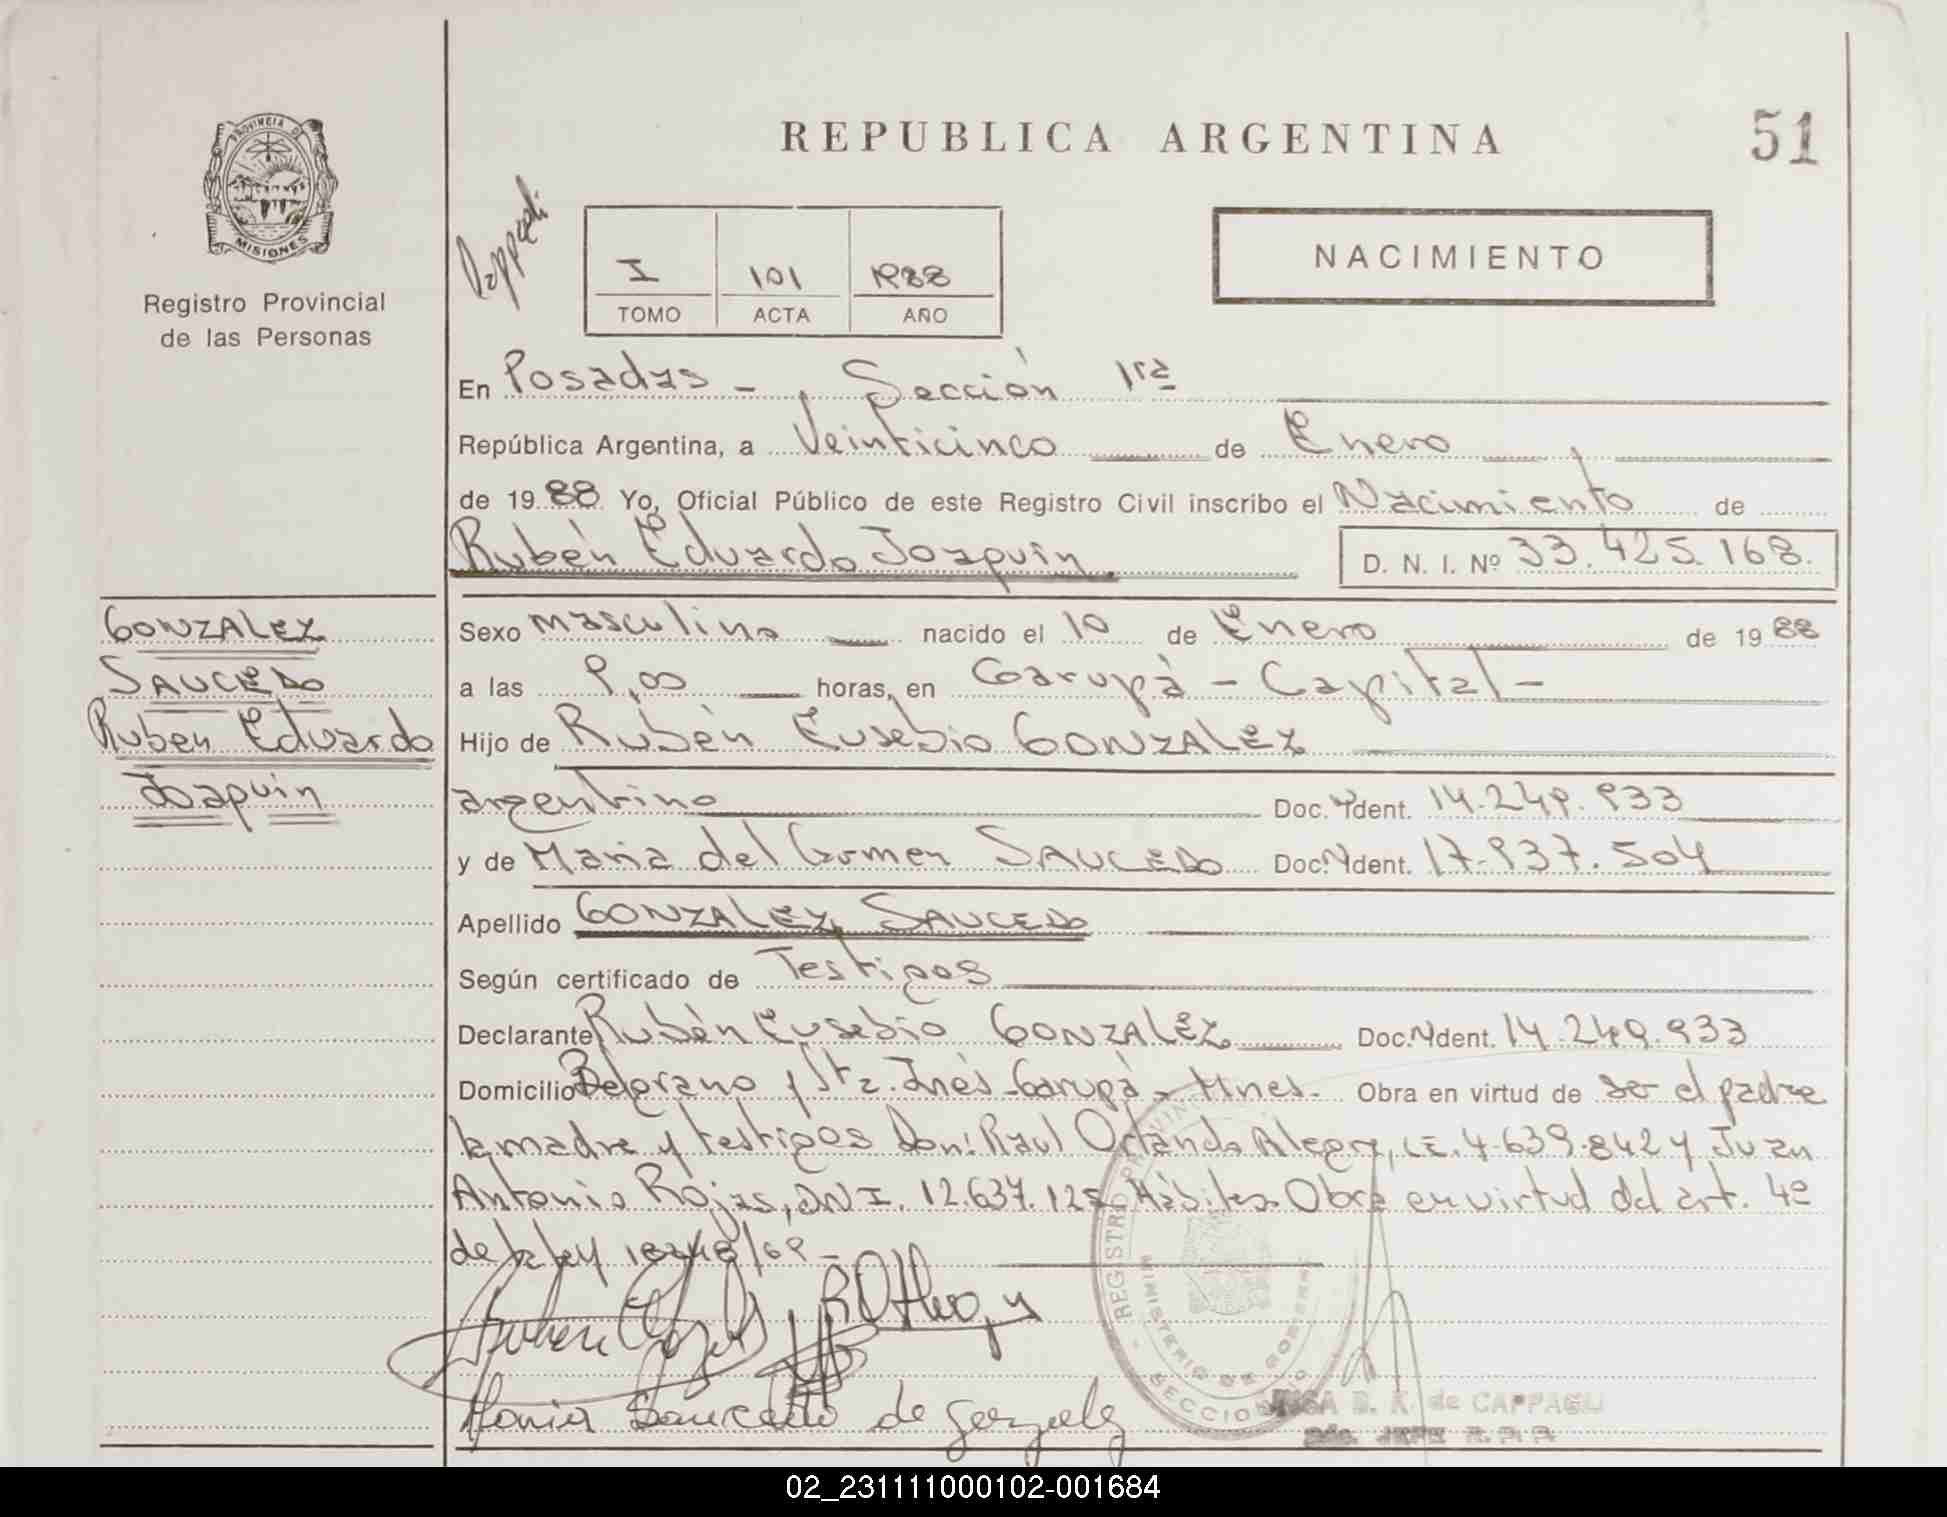 REPUBLICA ARGENTINA
51
PROVINCIA DE
MISIONES
Registro Provincial
de las Personas
I 101 1988
TOMO ACTA AÑO
NACIMIENTO
En Posadas - Sección 1ra
República Argentina, a Veinticinco de Enero
de 1988 Yo, Oficial Público de este Registro Civil inscribo el Nacimiento de
Rubén Eduardo Joaquin
D. N. I. Nº 33.425.168.
GONZALEZ
SAUCEDO
Ruben Eduardo
Joaquin
Sexo masculino nacido el 10 de Enero de 1988
a las 9,00 horas, en Garupá - Capital -
Hijo de Rubén Eusebio GONZALEZ
argentino Doc. Ident. 14.249.933
y de Maria del Carmen SAUCEDO Doc. Ident. 17.937.504
Apellido GONZALEZ SAUCEDO
Según certificado de Testigos
Declarante Rubén Eusebio GONZALEZ Doc. Ident. 14.249.933
Domicilio Belgrano y Sta. Inés - Garupá - Mnes. Obra en virtud de ser el padre
la madre y testigos Don: Raul Orlando Alegre, LE. 4.639.842 y Juan
Antonio Rojas, DNI. 12.637.125 Hábiles. Obra en virtud del art. 4º
de la ley 18248/69 -
Maria Saucedo de Gonzalez
REGISTRO PROVINC
MINISTERIO DE GOBIERNO
SECCIO
B. K. de CAPPAGLI
JEFE R. P. P.
02_231111000102-001684